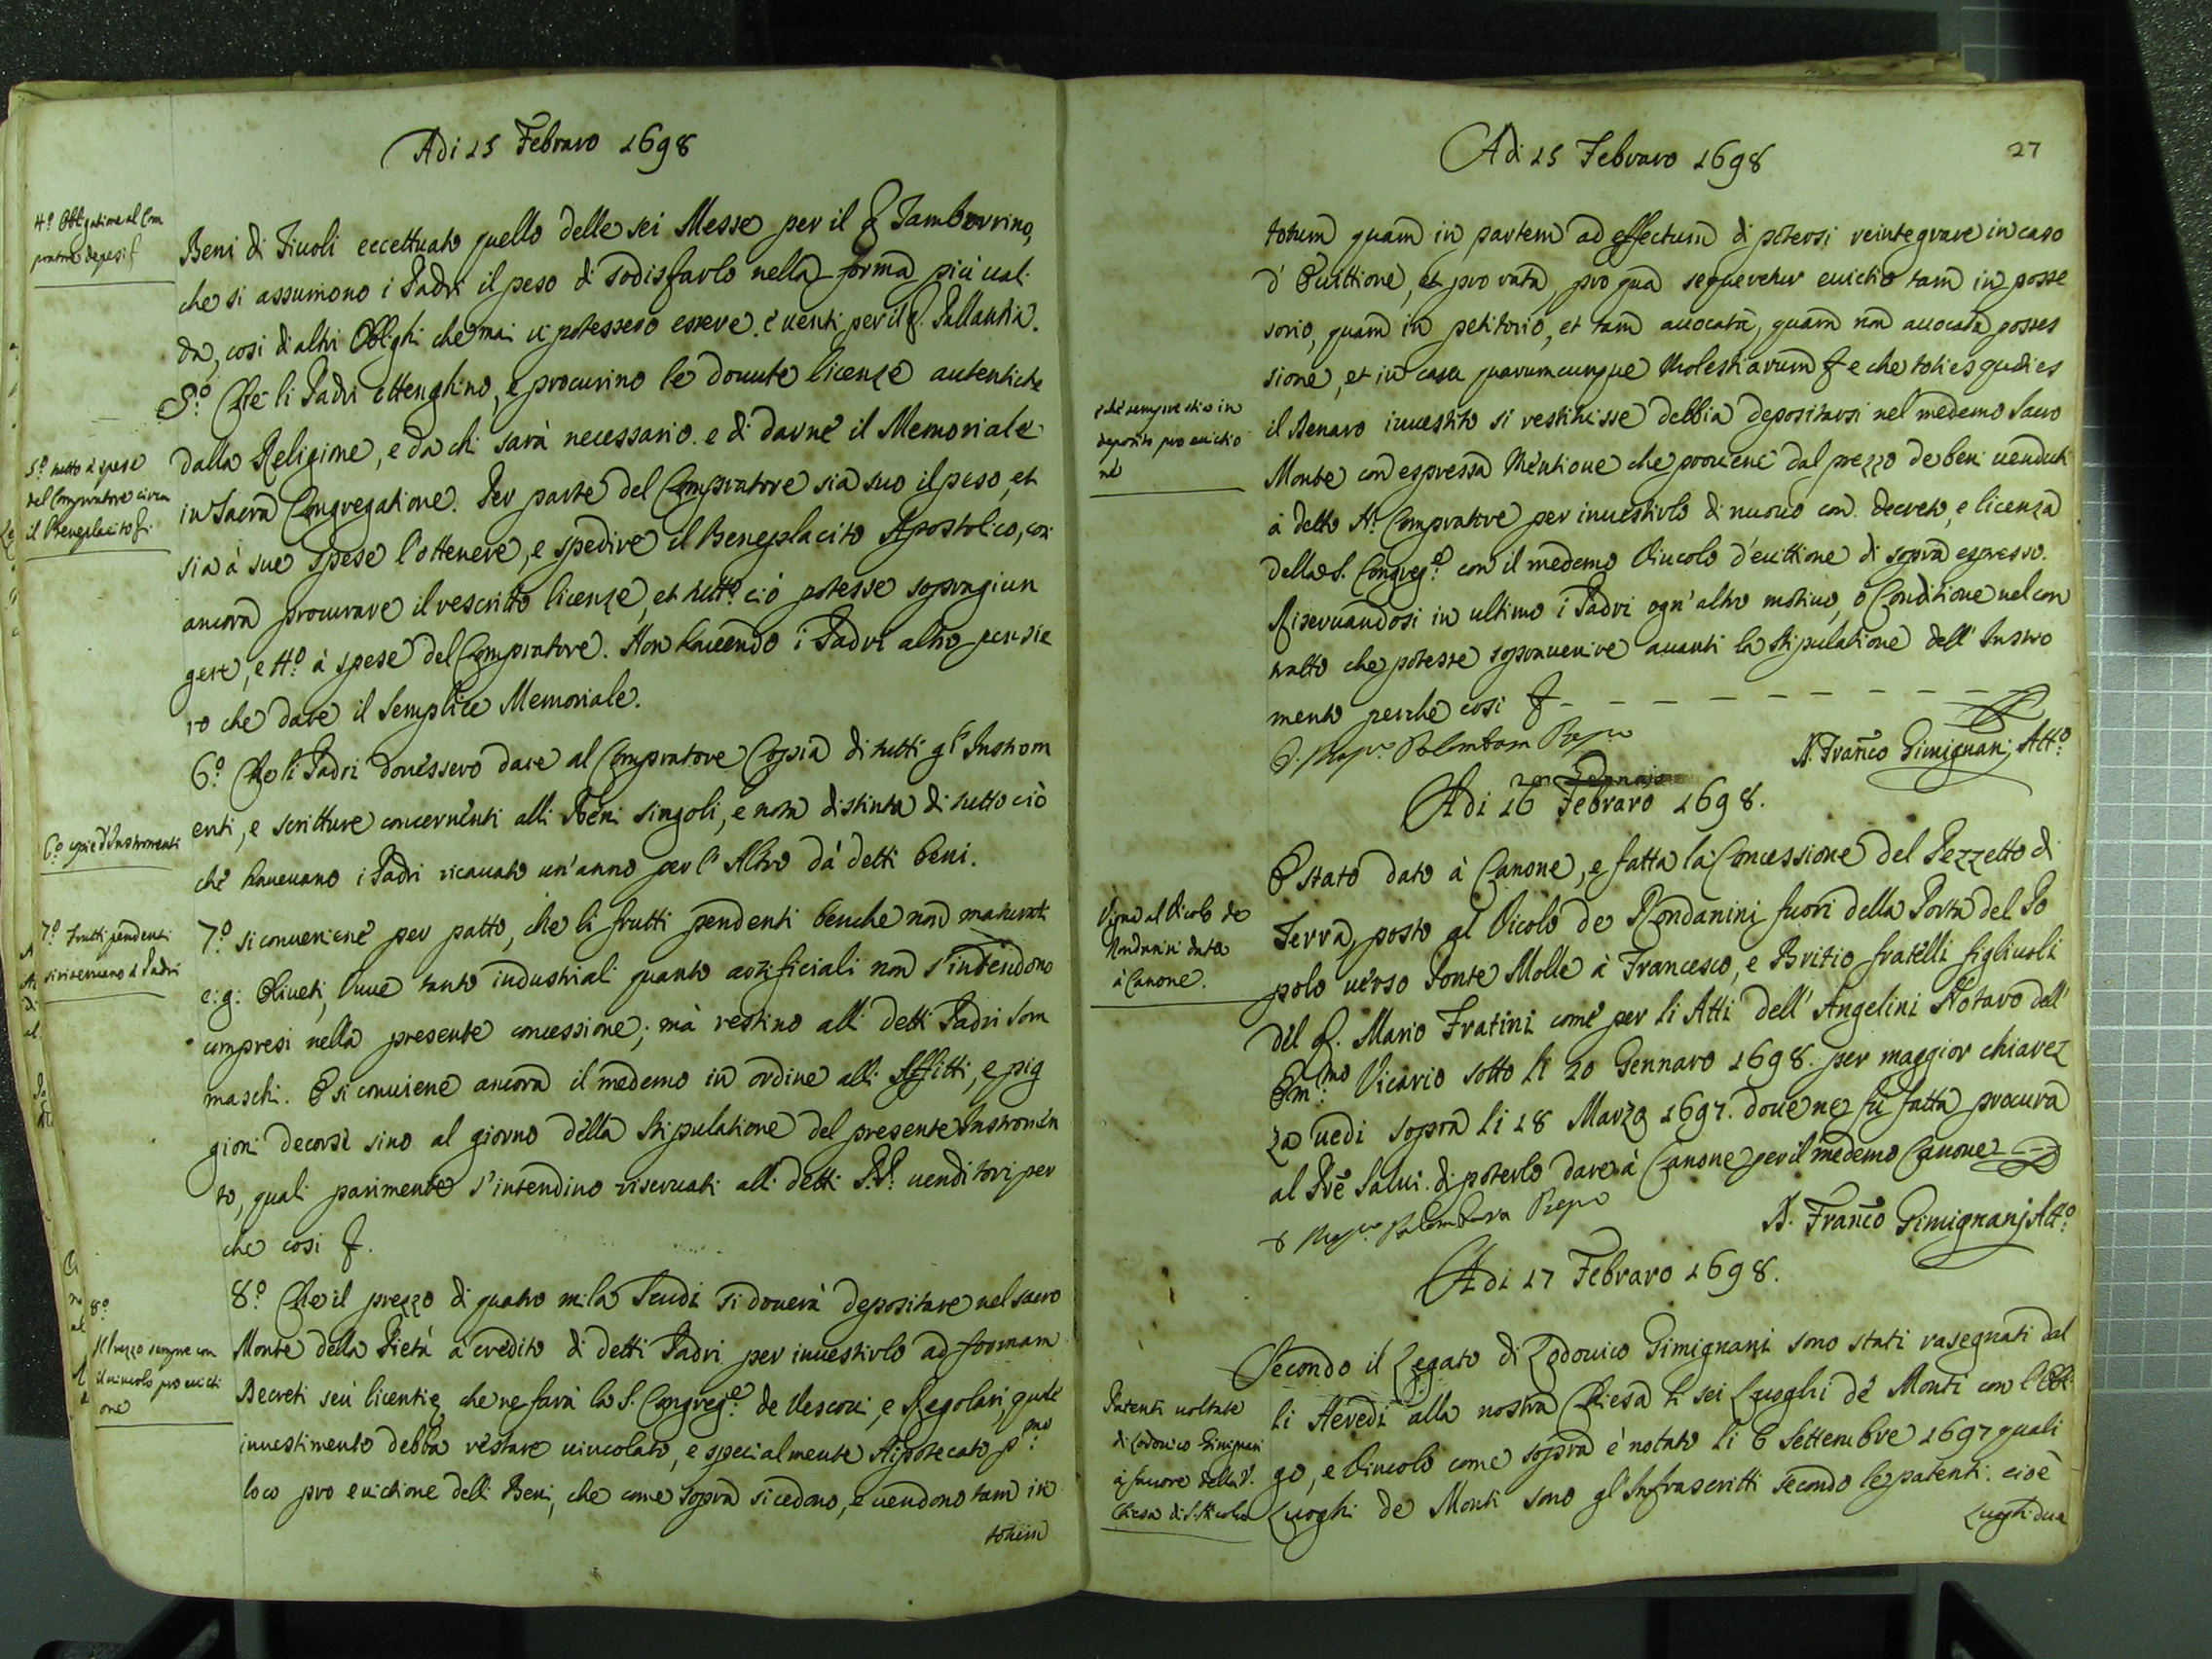 Adi 15 Febraro 1698
4.º Obligatione al Com
pratore de pesi
Beni di Tiuoli eccettuato quello delle sei Messe per il q Tamburrino,
che si assumono i Padri il peso di sodisfarlo nella forma più uali
da, cosi di altri Oblighi che mai ui potessero essere. è uenti per il q. Pallantia.
5.º Che li Padri ottenghino, e procurino le douute licenze autentiche
dalla Religione, e da chi sarà necessario. e di darne il Memoriale
5.º tutto à spese
del Compratore circa
il Beneplacito
in Sacra Congregatione. Per parte del Compratore sia suo il peso, et
sia à sue spese l'ottenere, e spedire il Beneplacito Apostolico, cosi
ancora procurare il rescritto licenze, et tutto ciò potesse sopragiun
gere, e tt.º à spese del Compratore. Non hauendo i Padri altro pensie
ro che dare il semplice Memoriale.
6.º Che li Padri douessero dare al Compratore Copia di tutti gl' Instrom
enti, e scritture concernenti alli Beni singoli, e nota distinta di tutto ciò
6.º copie d'Instromenti
che haueuano i Padri ricauato un'anno per l'Altro dà detti beni.
7.º si conueniene per patto, che li frutti pendenti benche non maturati
7.º frutti pendenti
si riseruano à Padri
e: g: Oliueti, Vuue tanto industriali quanto artificiali non s'intendono
compresi nella presente concessione; mà restino alli detti Padri Som
maschi. E si conuiene ancora il medemo in ordine alli Affitti, e pig
gioni decorse sino al giorno della stipulatione del presente Instromen
to, quali parimente s'intendino riseruati alli detti P.P. uenditori per
che cosi
8.º Che il prezzo di quatro mila Scudi si douerà depositare nel sacro
8.º
Il Prezzo sempre con
il uincolo pro euicti
one
Monte della Pietà à credito di detti Padri per inuestirlo ad formam
Decreti seù licentię che ne farà la S. Congreg.e de Vescoui, e Regolari, quale
inuestimento debba restare uincolato, e specialmente Hipotecato p.mo
loco pro euictione delli Beni, che come sopra si cedono, e uendono tam in
totum
Adi 15 Febraro 1698
27
totum quam in partem ad effectum di potersi reintegrare in caso
d'Euittione, et pro rata, pro qua sequeretur euictio tam in posse
sorio, quam in petitorio, et tam auocata, quam non auocata posses
sione, et in casu quarumcunque Molestiarum e che toties quoties
e che sempre stia in
deposito pro euictio
ne
il Denaro inuestito si restituisse debbia depositarsi nel medemo sacro
Monte con espressa Mentione che prouiene dal prezzo de beni uenduti
à detto Sr. Compratore per inuestirlo di nuouo con decreto, e licenza
della S. Congreg.e con il medemo Vincolo d'euittione di sopra espresso.
Riseruandosi in ultimo i Padri ogn' altro motiuo, ò Conditione nel con
tratto che potesse soprauenire auanti la stipulatione dell' Instro
mento perche cosi
Palombara
D. Franco Gimignani Att.º
Adi 16 Febraro 1698.
E stato dato à Canone, e fatta la Concessione del Pezzetto di
Vigna al Vicolo de
Rondanini data
à Canone.
Terra, posto al Vicolo de Rondanini fuori della Porta del Po
polo uerso Ponte Molle à Francesco, e Britio fratelli figliuoli
del q. Mario Fratini come per li Atti dell' Angelini Notaro dell'
Em.mo Vicario sotto li 20 Gennaro 1698. per maggior chiarez
za uedi sopra li 18 Marzo 1697. doue ne fù fatta procura
al Pre Salui di poterlo dare à Canone per il medemo Canone
Palombara
D. Franco Gimignani Att.º
Adi 17 Febraro 1698.
Secondo il Legato di Lodouico Gimignani sono stati rasegnati dal
Patenti uoltate
di Lodouico Gimignani
à fauore della N.
Chiesa di S. Nicolo
li Heredi alla nostra Chiesa li sei Luoghi de Monti con l'Obli
go, e Vincolo come sopra è notato li 6 Settembre 1697 quali
Luoghi de Monti sono gl'Infrascritti secondo le patenti. cioè
Luoghi due